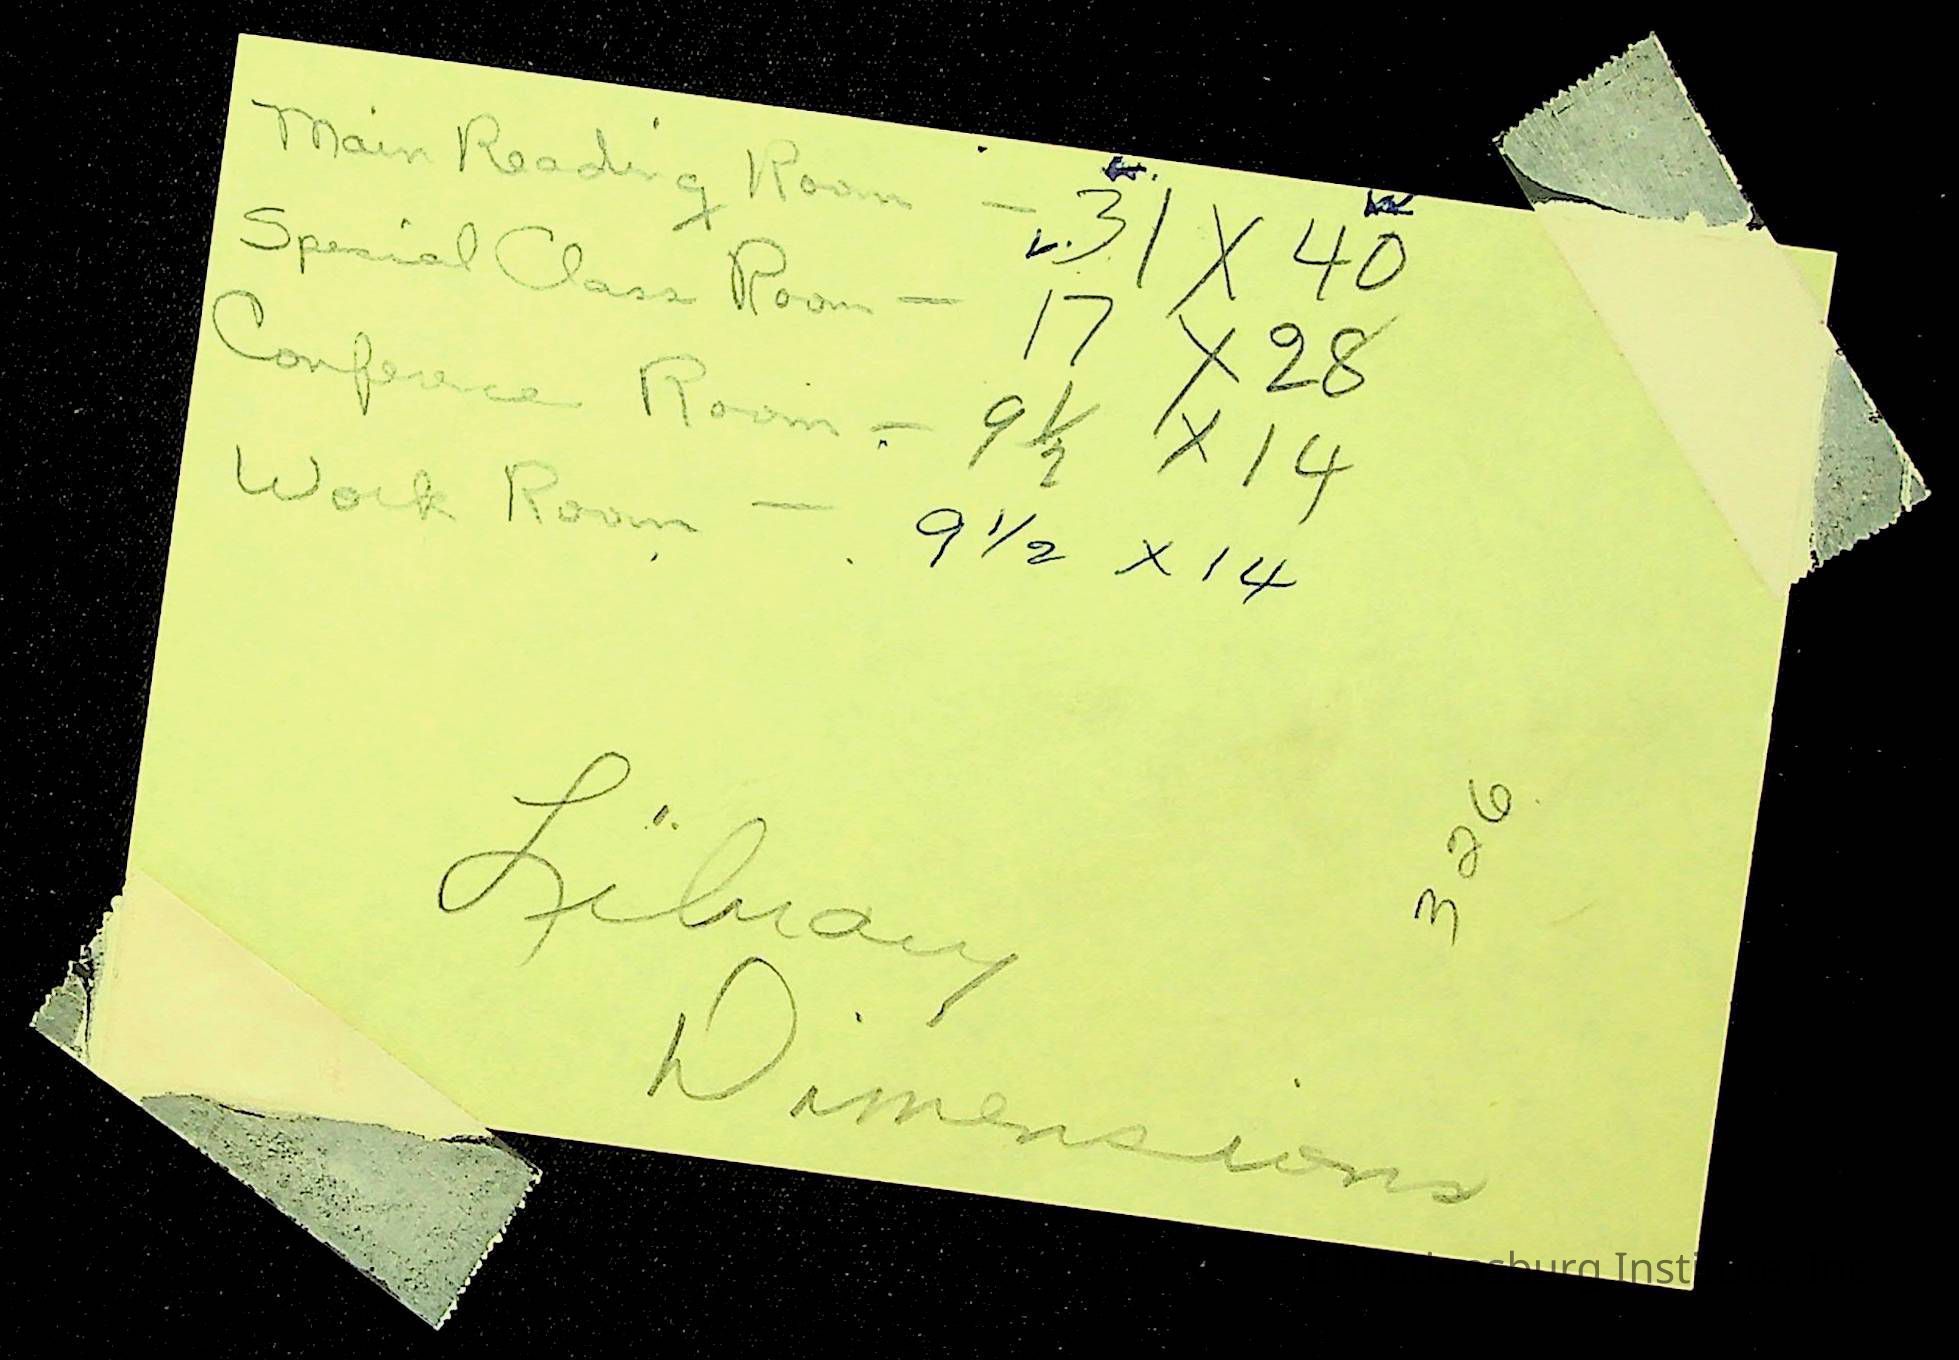 Main Reading Room — 31 X 40
Special Class Room — 17 X 28
Conference Room — 9 1/2 X 14
Work Room — 9 1/2 X 14
Library
Dimensions
326